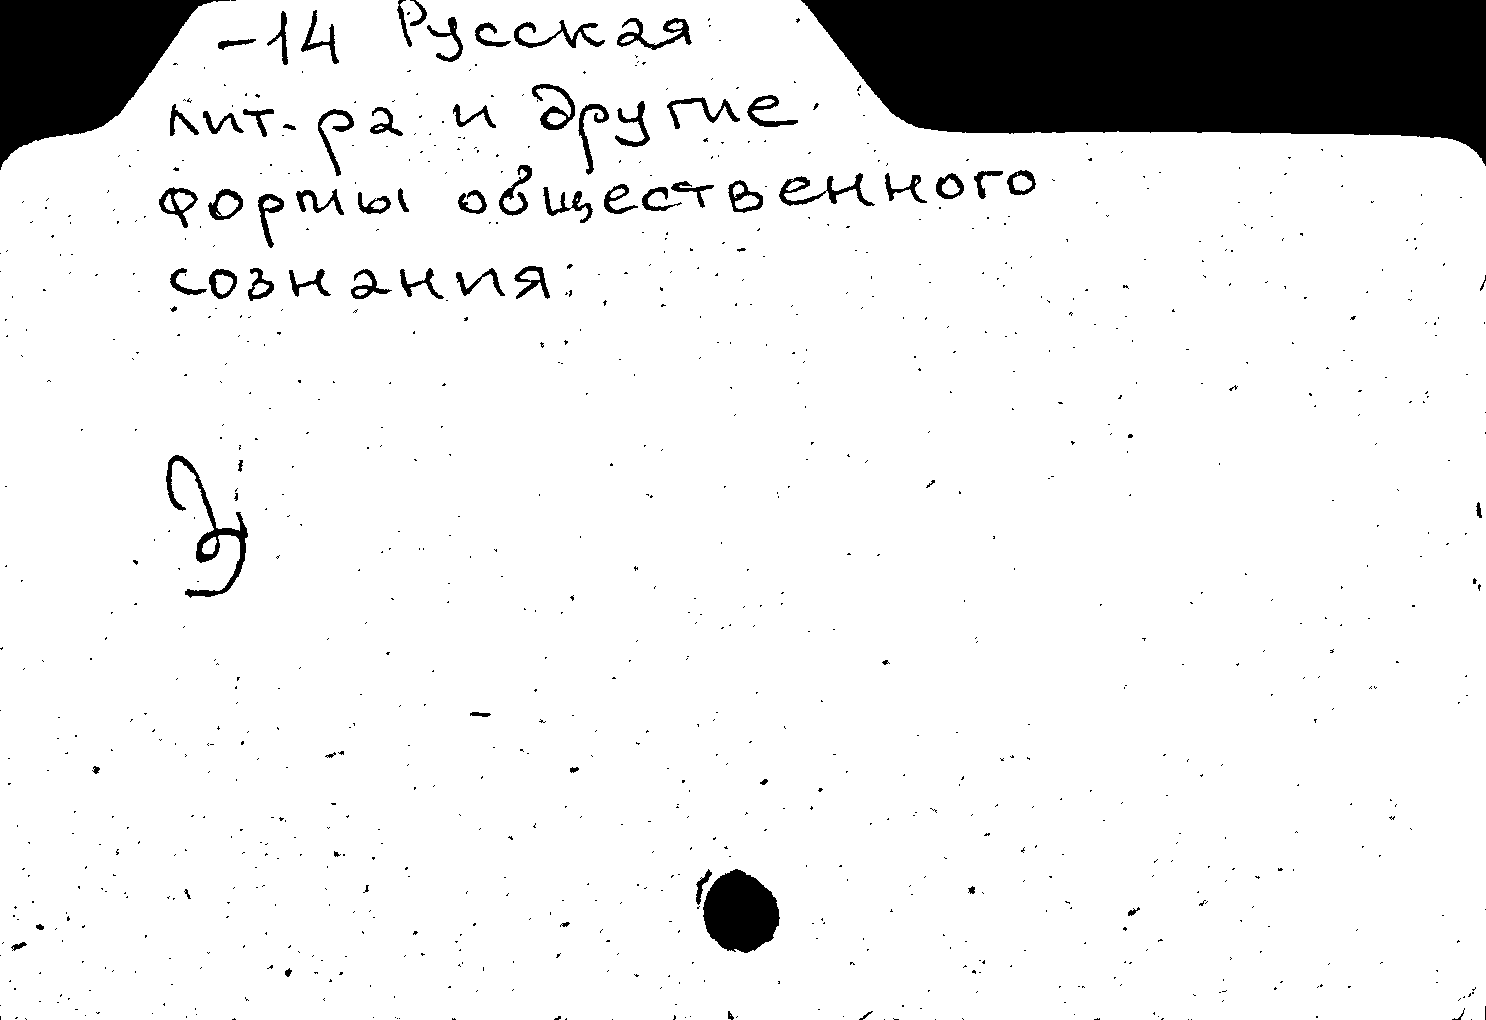 -14 Русская
лит-ра и другие
формы общественного
сознания: